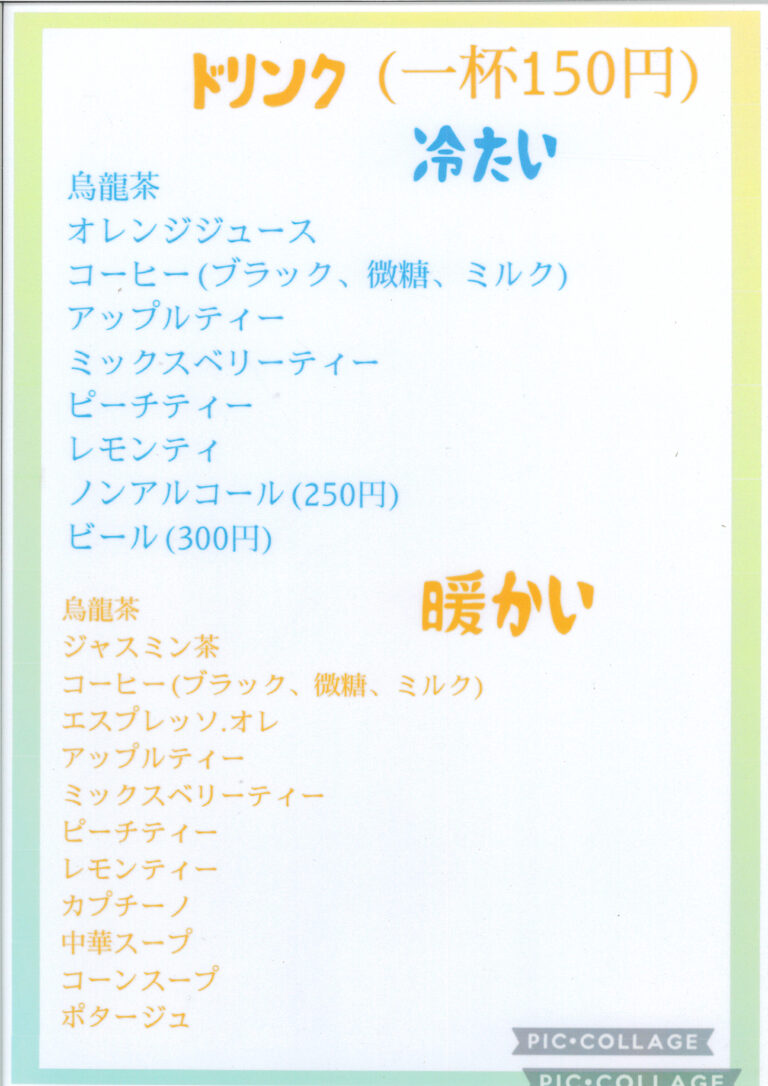 ドリンク (一杯150円)
冷たい
烏龍茶
オレンジジュース
コーヒー(ブラック、微糖、ミルク)
アップルティー
ミックスベリーティー
ピーチティー
レモンティ
ノンアルコール(250円)
ビール(300円)
暖かい
烏龍茶
ジャスミン茶
コーヒー(ブラック、微糖、ミルク)
エスプレッソ.オレ
アップルティー
ミックスベリーティー
ピーチティー
レモンティー
カプチーノ
中華スープ
コーンスープ
ポタージュ
PIC•COLLAGE
PIC•COLLAGE